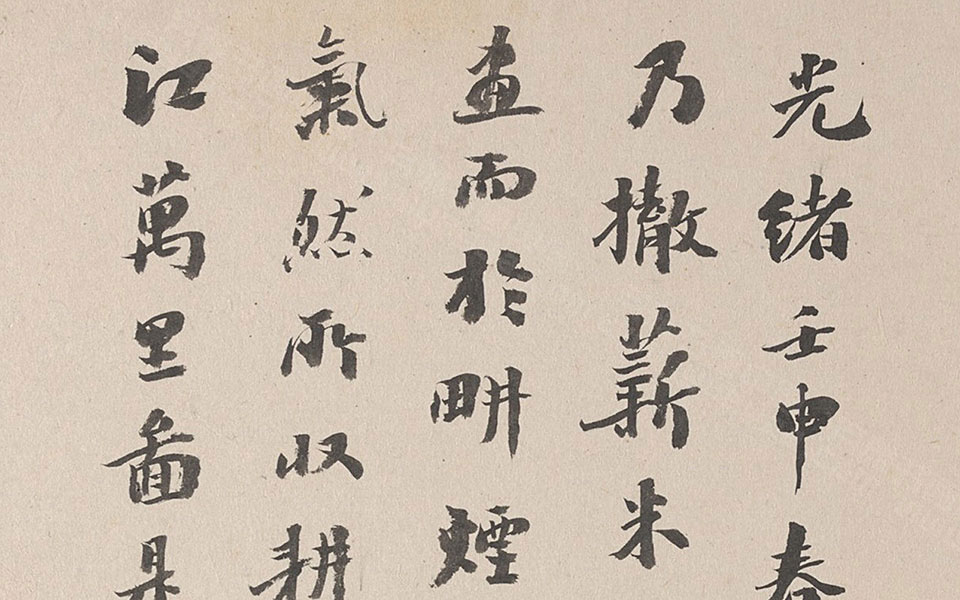 光緒壬申春
乃撤薪米
畫而於畊煙
氣然所収耕
江萬里啚